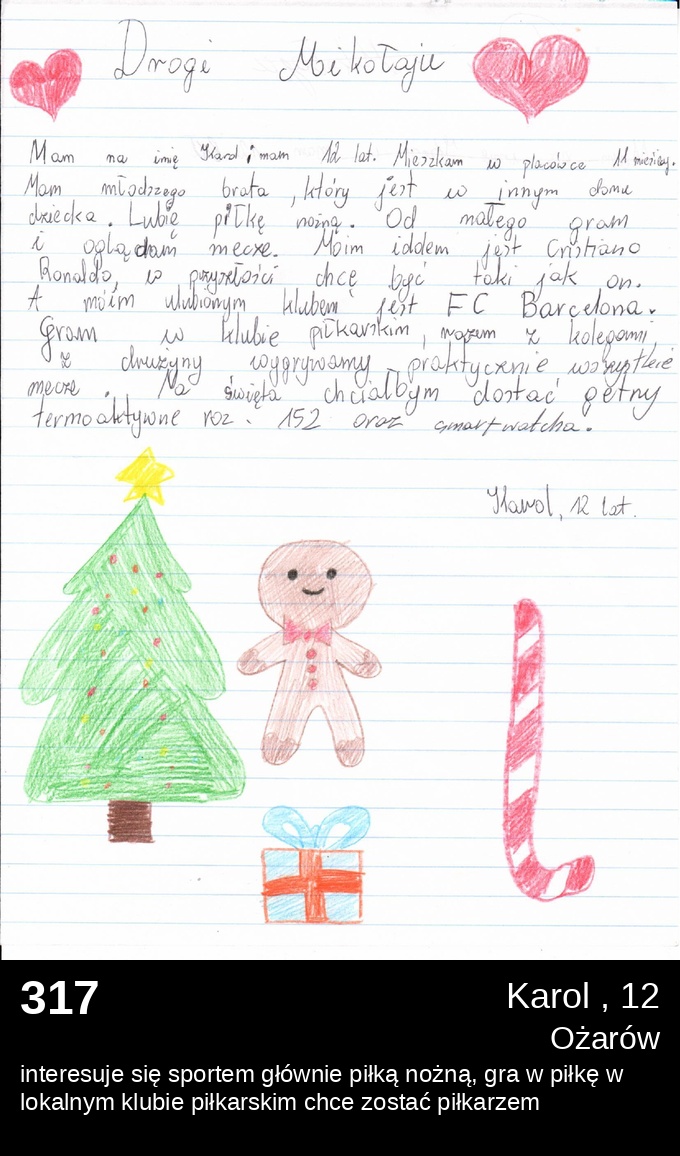 Drogi Mikołaju
Mam na imię Karol i mam 12 lat. Mieszkam w placówce 11 miesięcy.
Mam młodszego brata , który jest w innym domu
dziecka. Lubię piłkę nożną. Od małego gram
i oglądam mecze. Moim idolem jest Cristiano
Ronaldo, w przyszłości chcę być taki jak on.
A moim ulubionym klubem jest FC Barcelona.
Gram w klubie piłkarskim, razem z kolegami
z drużyny wygrywamy praktycznie wszystkie
mecze. Na święta chciałbym dostać getry
termoaktywne roz. 152 oraz smartwatcha.
Karol, 12 lat.
317
Karol , 12
Ożarów
interesuje się sportem głównie piłką nożną, gra w piłkę w
lokalnym klubie piłkarskim chce zostać piłkarzem